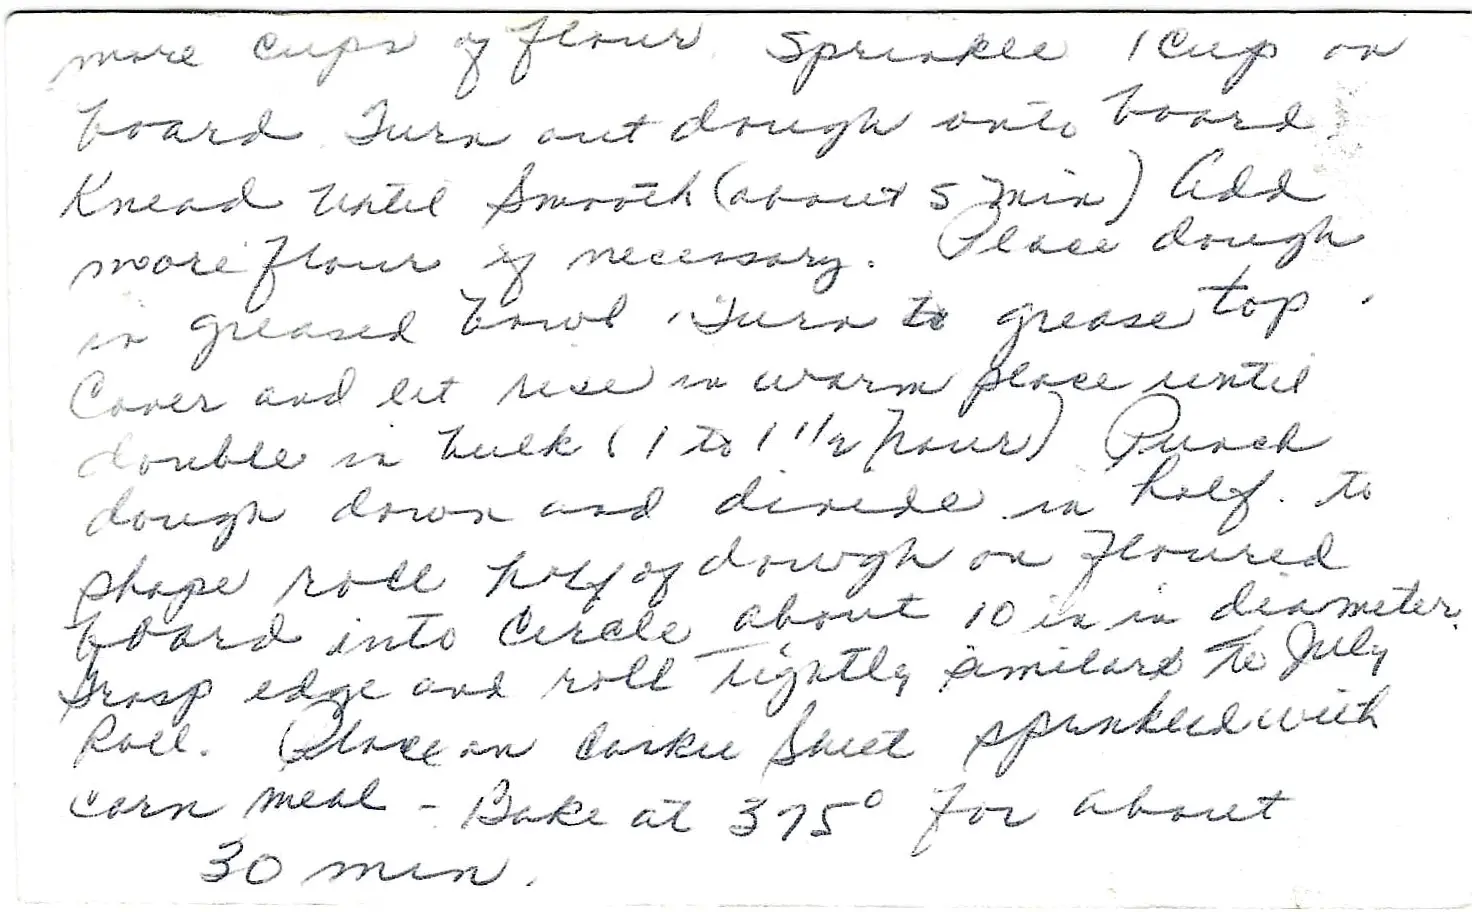 more cups of flour. Sprinkle 1 cup on
board. Turn out dough onto board.
Knead until smooth (about 5 min) Add
more flour if necessary. Place dough
in greased bowl. Turn to grease top.
Cover and let rise in warm place until
double in bulk (1 to 1 1/2 hour) Punch
dough down and divide in half. to
shape roll half of dough on floured
board into circle about 10 in in diameter.
Grasp edge and roll tightly similard to Jully
Roll. Place on cookie sheet sprinkled with
corn meal - Bake at 375° for about
30 min.